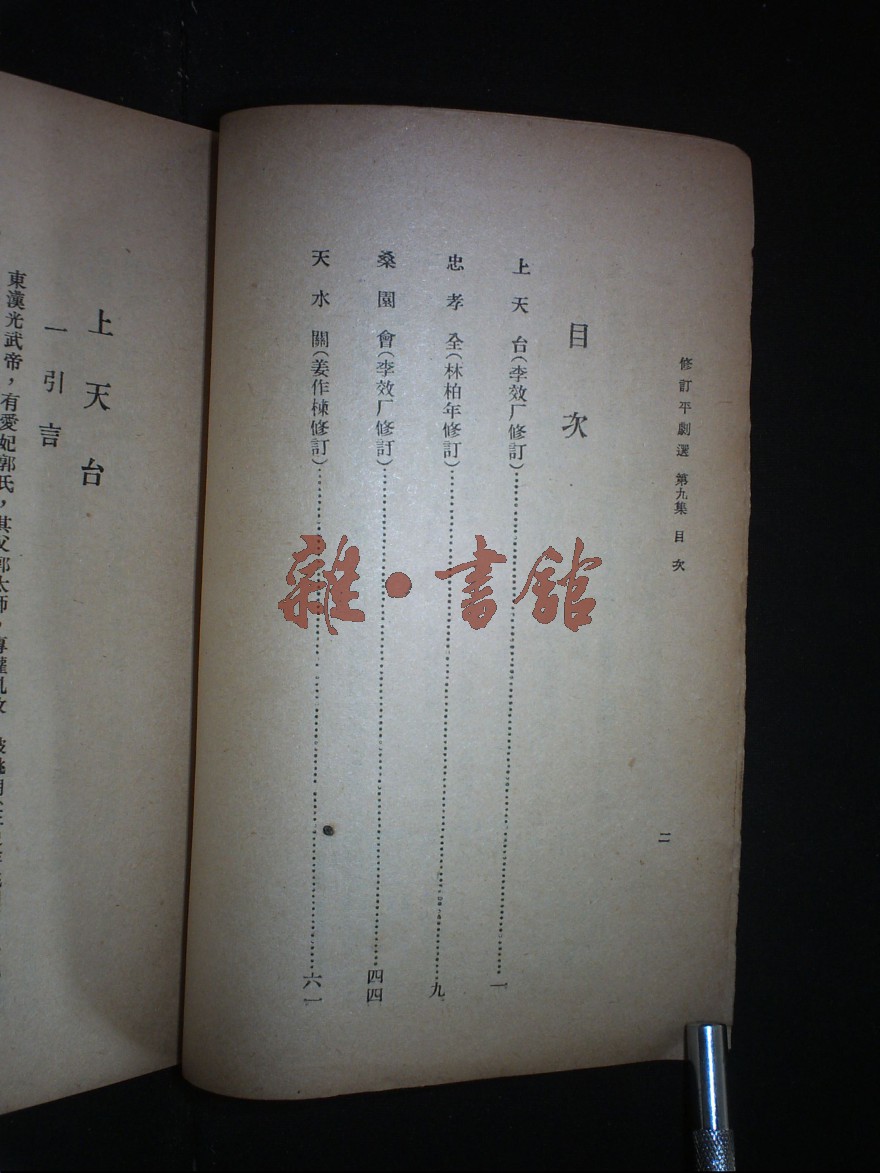 修訂平劇選 第九集 目次
二
目次
上天台(李效厂修訂)……一
忠孝全(林柏年修訂)……九
桑園會(李效厂修訂)……四四
天水關(姜作棟修訂)……六一
雜·書館
上天台
一引言
東漢光武帝，有愛妃郭氏，其父郭太師，專權亂政